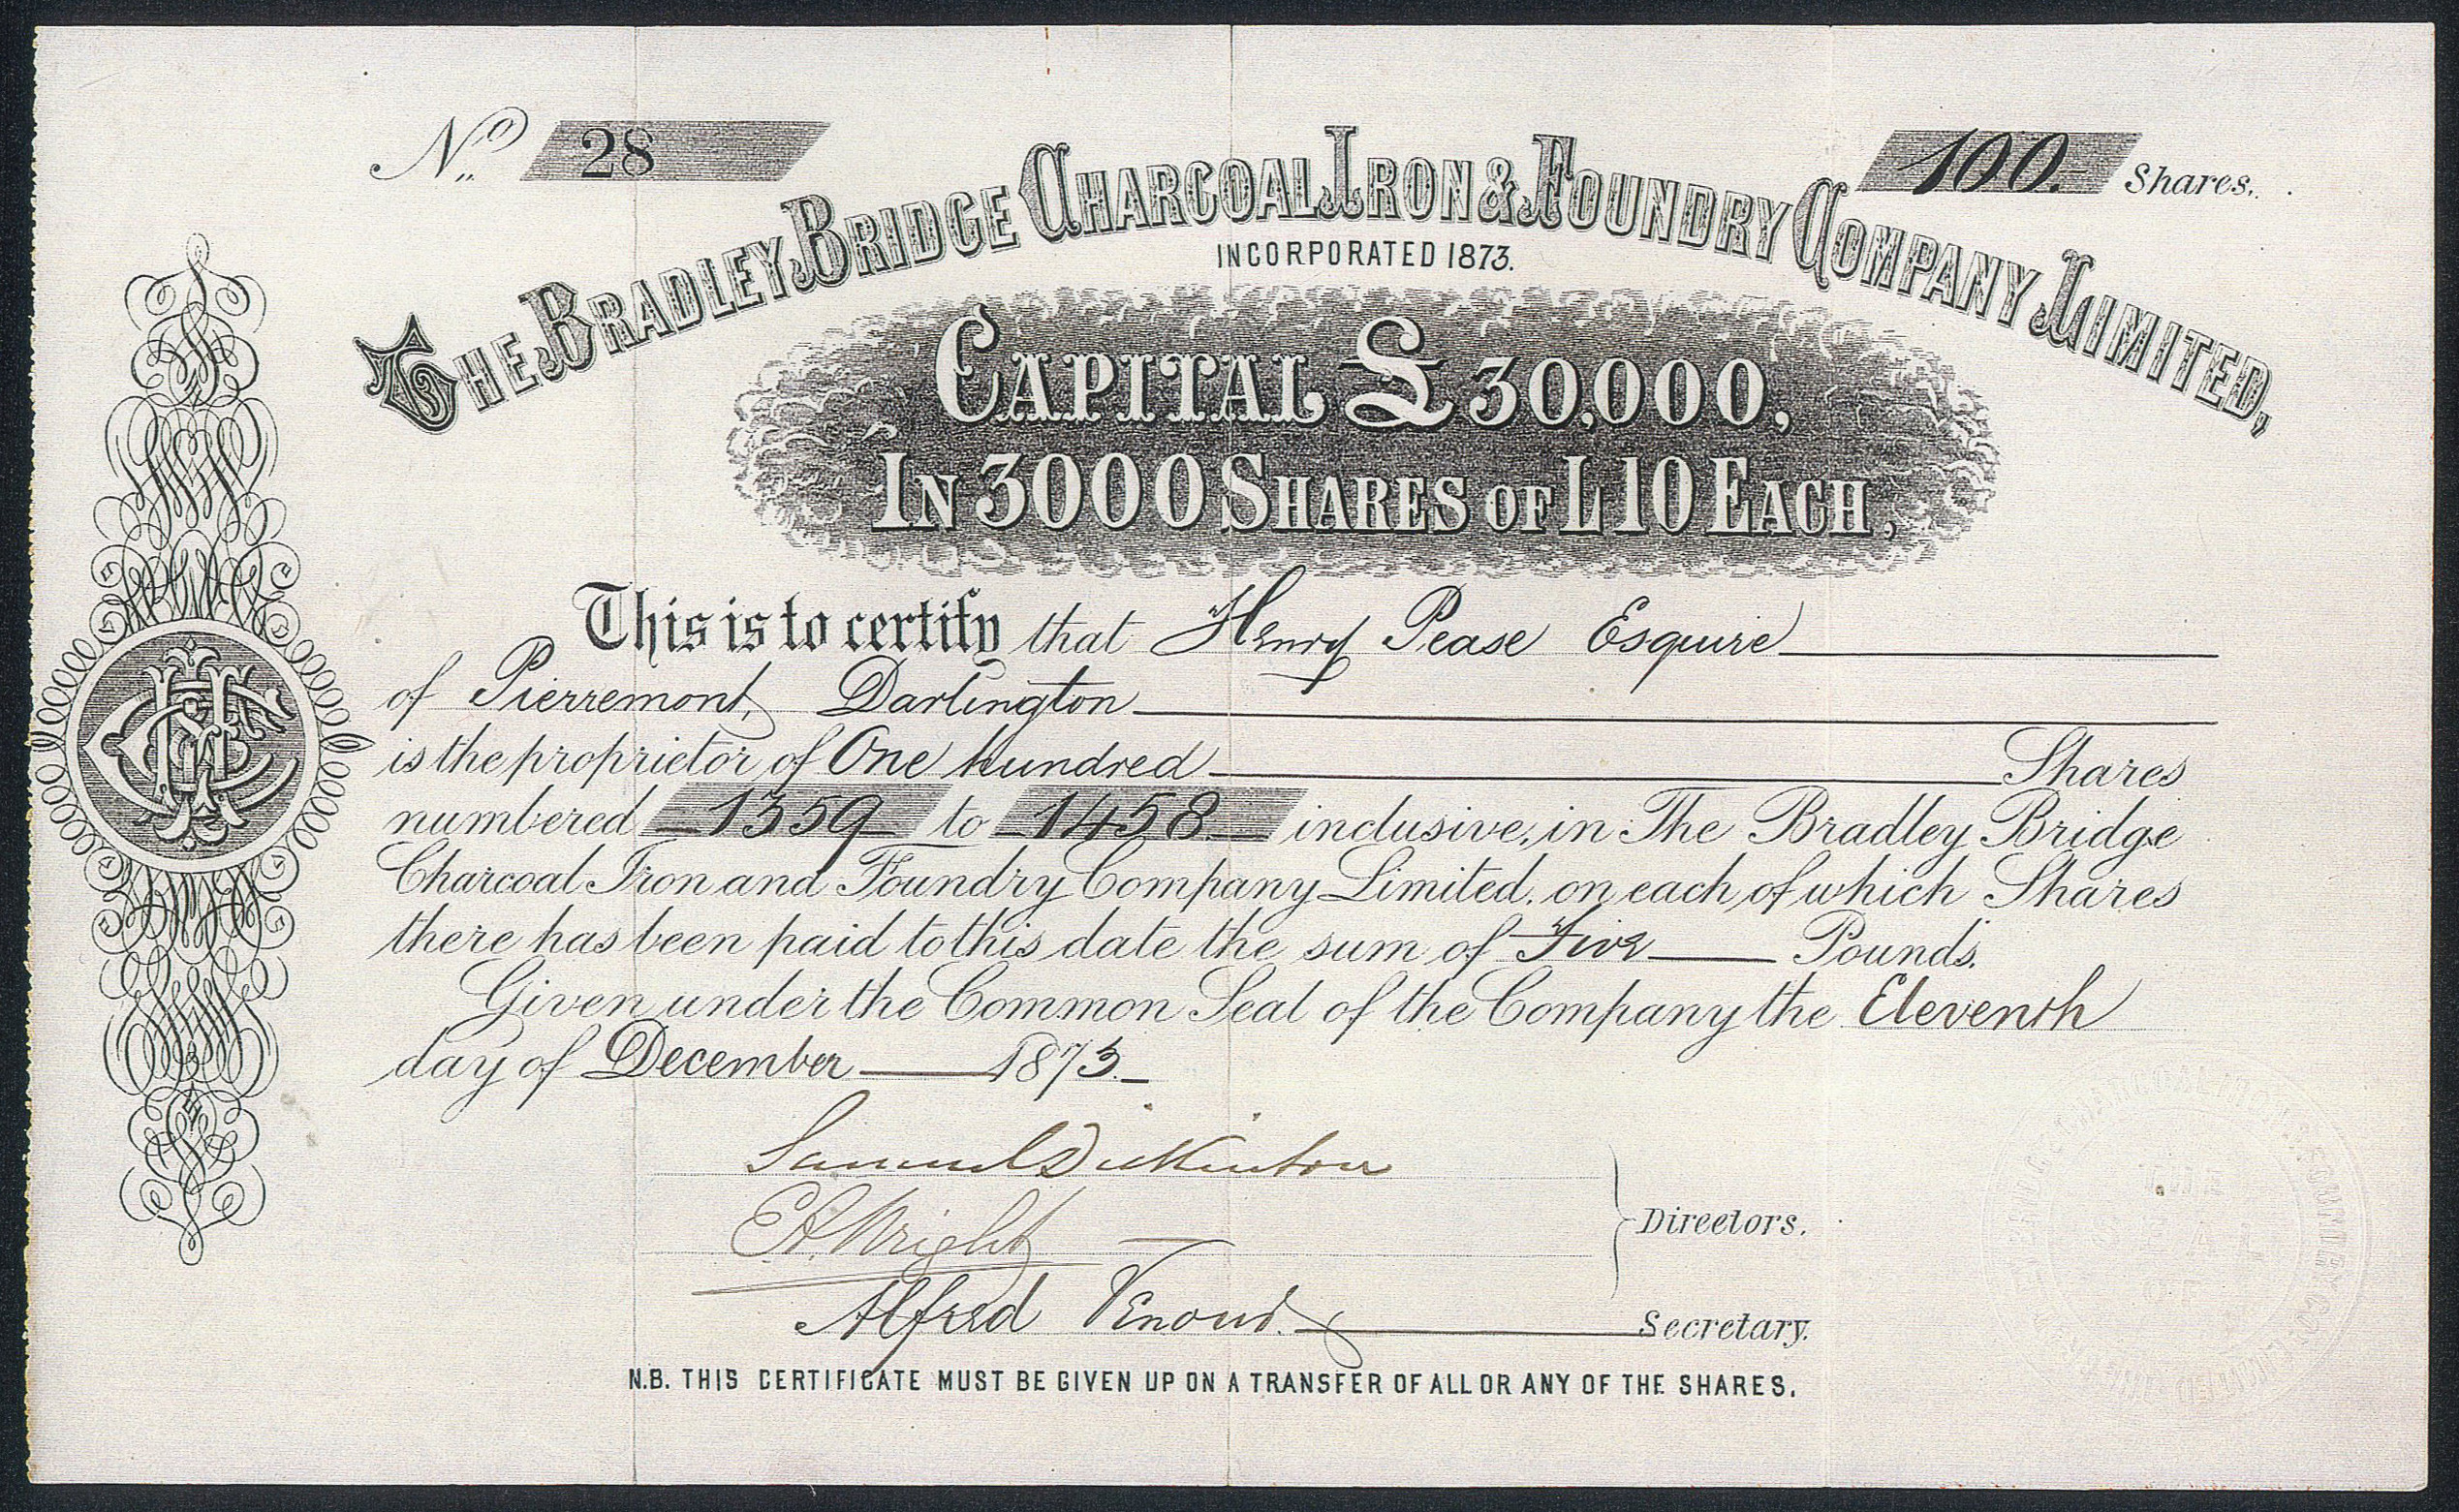 No. 28
100. Shares.
THE BRADLEY BRIDGE CHARCOAL IRON & FOUNDRY COMPANY LIMITED,
INCORPORATED 1873.
CAPITAL £30,000,
IN 3000 SHARES OF L10 EACH,
This is to certify that Henry Pease Esquire
of Pierremont, Darlington
is the proprietor of One hundred Shares
numbered 1359 to 1458 inclusive, in The Bradley Bridge
Charcoal Iron and Foundry Company Limited, on each of which Shares
there has been paid to this date the sum of Five Pounds.
Given under the Common Seal of the Company the Eleventh
day of December 1873.
Samuel Dickinson
E.A. Wright
Directors.
Alfred
Secretary.
N.B. THIS CERTIFICATE MUST BE GIVEN UP ON A TRANSFER OF ALL OR ANY OF THE SHARES.
THE
SEAL
OF